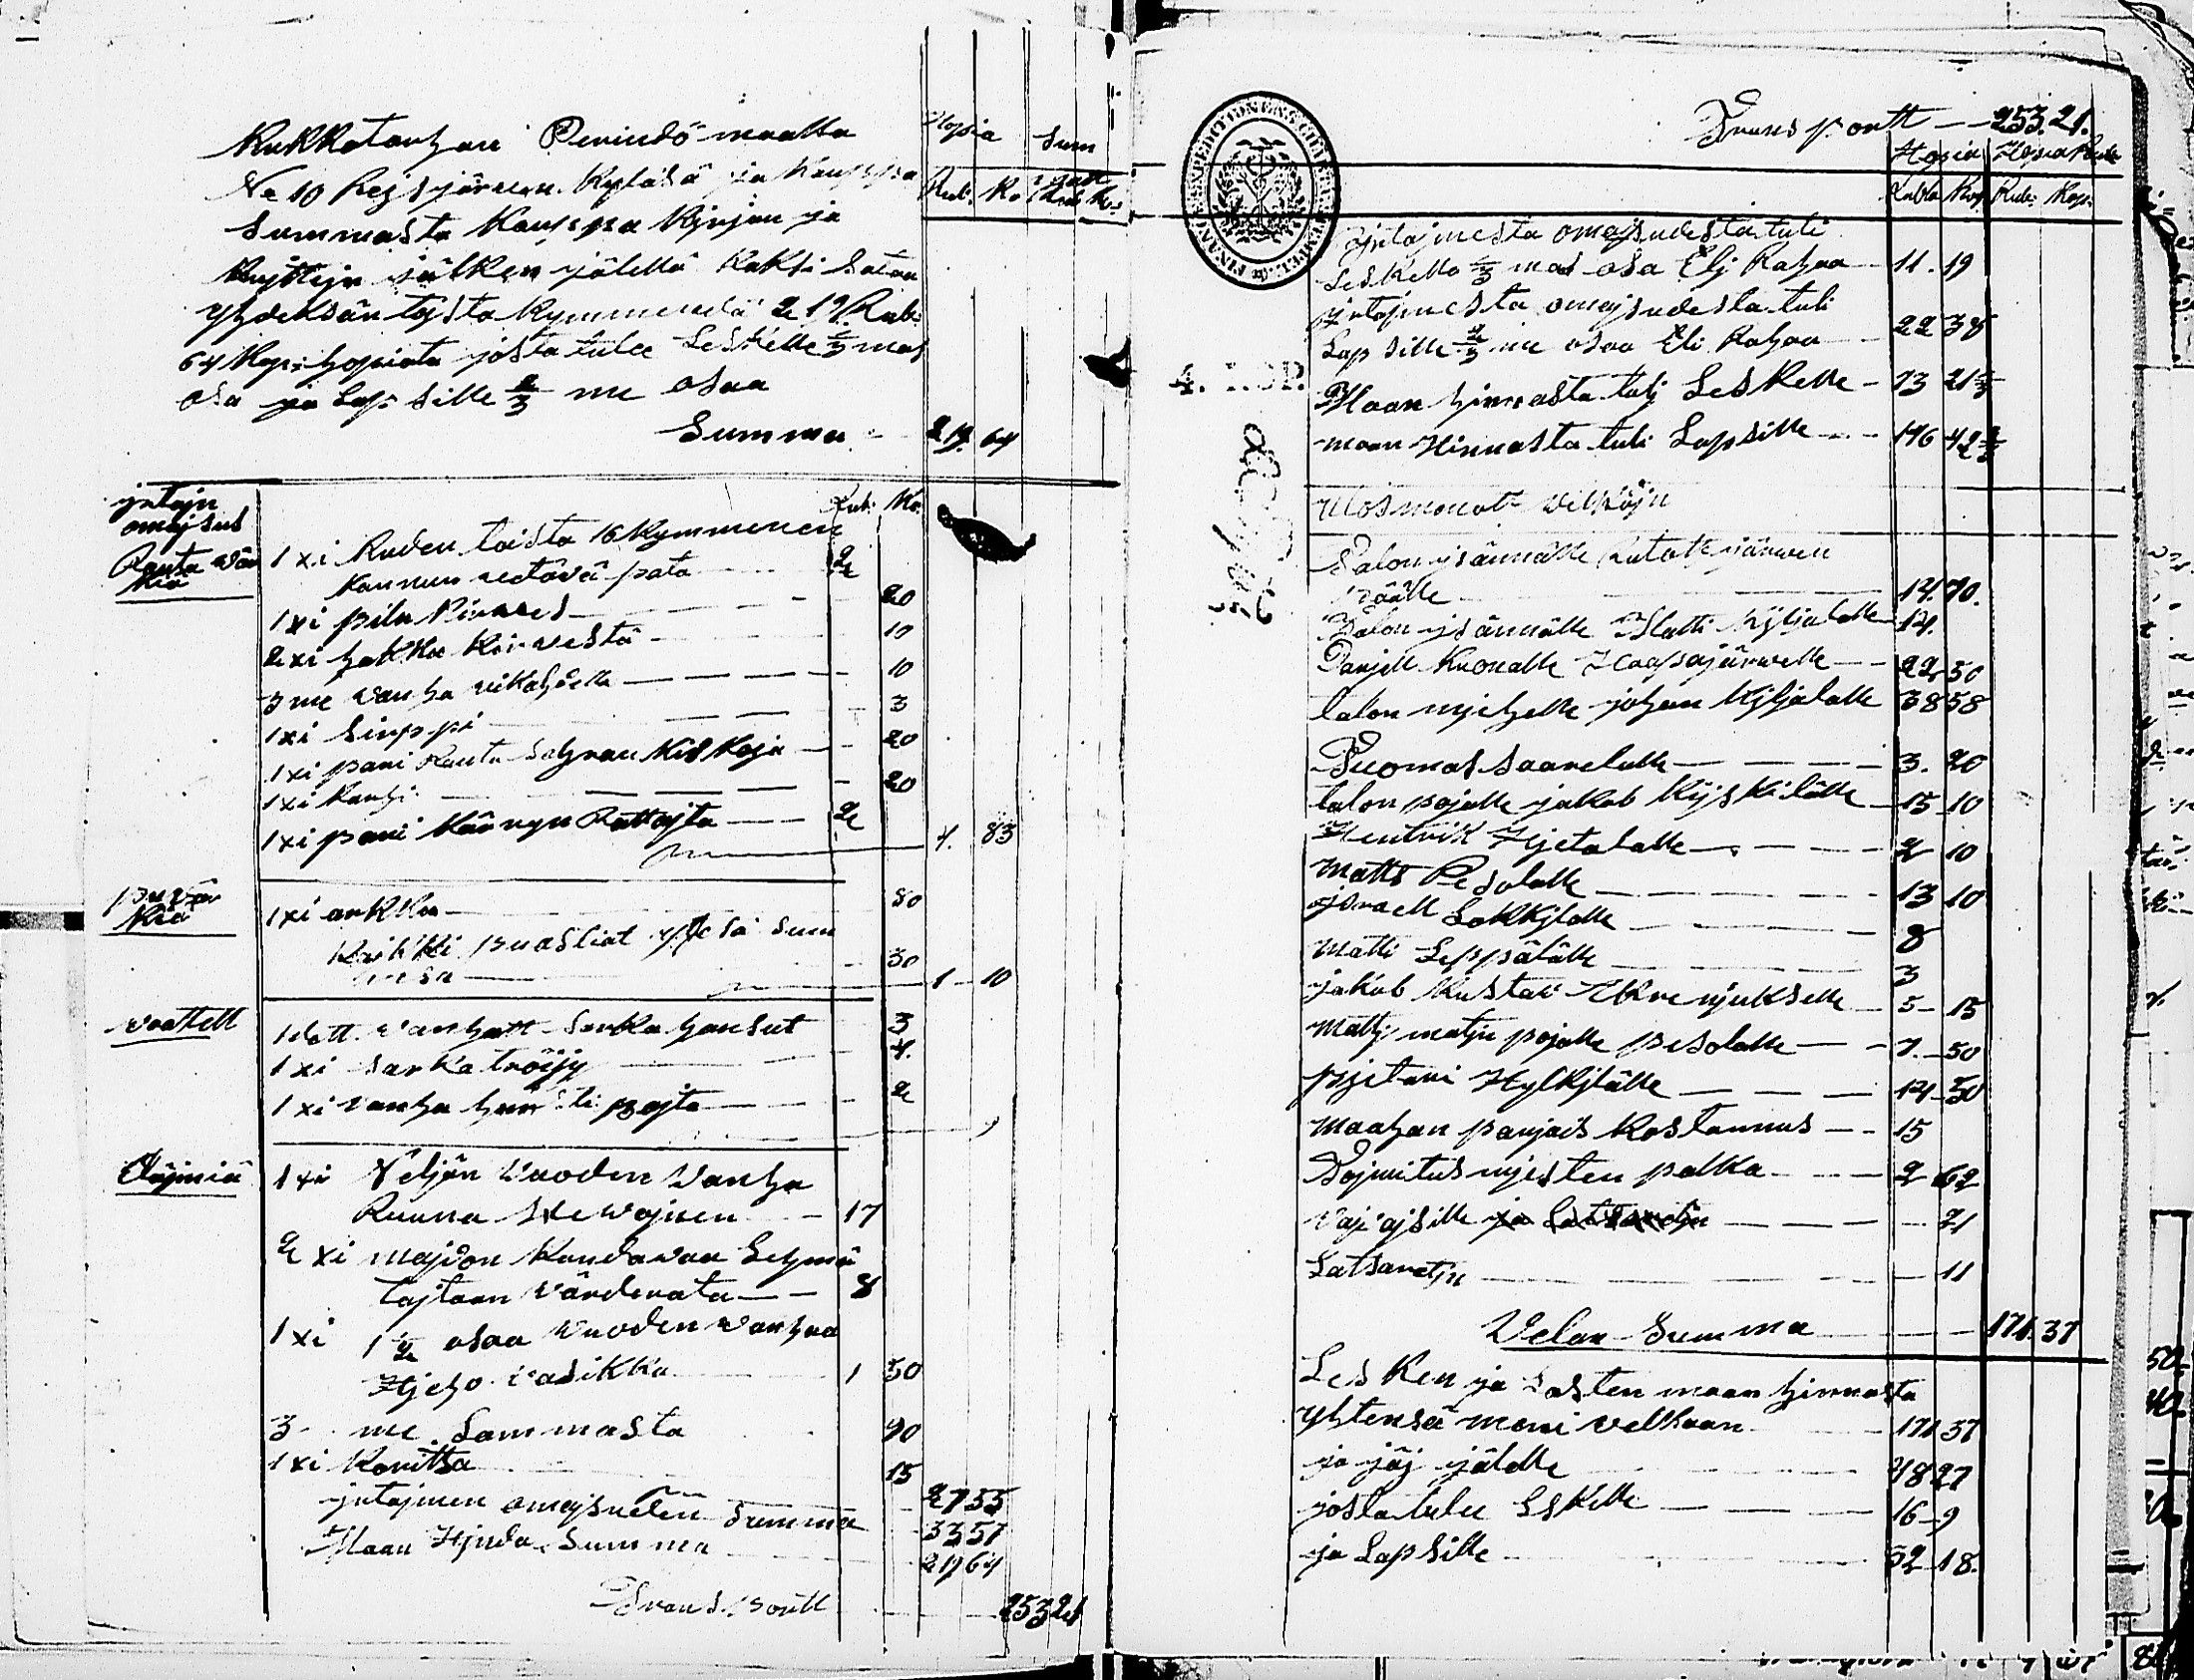 Kukkotarhan Perindö maalla
No 10 Reisjärwen Kyläsä ja Kauppa
Summasta Kauppa Kirjan ja
Kvjttejn jälken jälellä Kaksi Sataa
Yhdeksän tojsta Kymmendä 219 Rub:
64 Kop: hopiata josta tulee Leskelle 1/3 mas
osa ja Lapsille 2/3 me osaa
Summa 219. 64
Hopia Sum
Rub. Ko
jrtajn
omajsus
Rub: Ko.
Rauta wär
kiä
1 xi Kuden toista 16 Kymmenen
Kannun vetävä pata 2
1 xi pilu Kirwes 20
2 xi hakku Kirvestä 10
3 me wanha vikahdetta 10
1 xi Sirppi 3
1 xi pari Rauta Sahran Kiskoja 20
1 xi Kanhi 20
1 xi pari Käärryn Rattajta 2
4. 83
puvär
kiä
1 xi ankku 80
Kaikki puastiat yhtesä sum
masa 30
1 10
vaattett
1 dett. vanhatt Sarka housut 3
1 xi Sarka tröijy 4.
1 xi vanha hursti pejta 2
Eläjmiä
1 xi Neljän Vuoden Wanha
Ruuna Hewojnen 17
2 xi majdon Kandavaa Lehmä
tajtaan värderata 8
1 xi 1 1/2 osaa Vuoden vanhaa
Hjeho vasikka 1 50
3 me Lammasta 90
1 xi Koritta 15
27 55
jrtajmen omajsuden Summa 33 57
Maan Hjnda Summa 219 64
Transportt 253 21
Transportt 253. 21.
Hopia Hopia Rub
Rubla Kop Rub: Kop:
jrtajmesta omajsudesta tuli
Leskelle 1/3 mas osa Elj Rahaa 11. 19
jrtajmesta omajsudesta tuli
Lapsille 2/3 me osaa Eli Rahaa 22 38
Maan hinnasta tulj Leskelle 73 21 1/3
maan Hinnasta tuli Lapsille 146 42 2/3
4. KOP.
Ulosmenott Velkojn
Talon ysännälle Kutatt järwen
päälle 14. 70.
Talon ysännälle Matti Kiljalalle 14.
Danjell Kuonalle Haapajärwelle 22 50
talon mjehelle johan Kiljalalle 38 58
Tuomas saarelalle 3. 20
talon pojalle jakob Kijskilälle 15 10
Hentrik Hjetalalle 2 10
Matts Pesolalle 13 10
jsraell Lokkjlalle 8
Matti Leppälälle 3
jakob Kustav 5 15
Mattj matju pojalle pesolalle 7. 50
pjetari Hylkjlälle 14 50
Maahan panjajs Kostannus 15
Tojmitus mjesten palka 2 62
vajvajsille ja Latsaretjn 21
Latsaretjn 11
Velan Summa 171. 37
Lesken ja Lasten maan hinnasta
Yhtensä meni velkaan 171 37
ja jäj jälelle 48 27
josta tulee Leskelle 16 9
ja Lapsille 32 18.